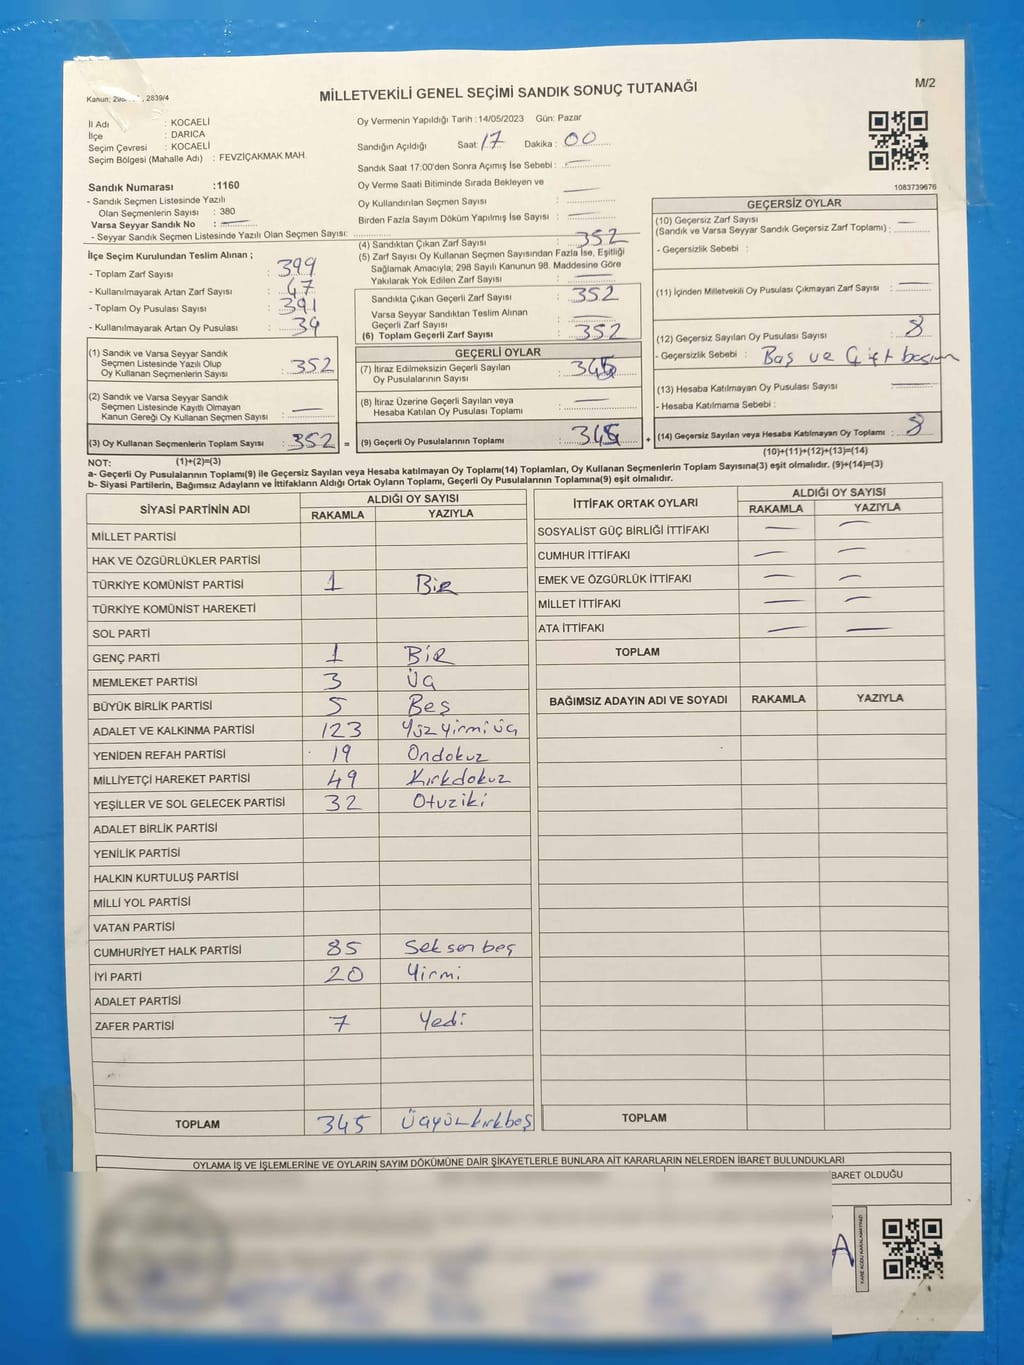 Kanun: 2839/4
MİLLETVEKİLİ GENEL SEÇİMİ SANDIK SONUÇ TUTANAĞI
M/2
İl Adı : KOCAELİ
İlçe : DARICA
Seçim Çevresi : KOCAELİ
Seçim Bölgesi (Mahalle Adı) : FEVZİÇAKMAK MAH.
Oy Vermenin Yapıldığı Tarih :14/05/2023 Gün: Pazar
Sandığın Açıldığı Saat: 17 Dakika : 00
Sandık Saat 17:00'den Sonra Açımış İse Sebebi : —
Oy Verme Saati Bitiminde Sırada Bekleyen ve
Oy Kullandırılan Seçmen Sayısı : —
Birden Fazla Sayım Döküm Yapılmış İse Sayısı : —
1083739676
Sandık Numarası :1160
- Sandık Seçmen Listesinde Yazılı
Olan Seçmenlerin Sayısı : 380
Varsa Seyyar Sandık No : —
- Seyyar Sandık Seçmen Listesinde Yazılı Olan Seçmen Sayısı:
İlçe Seçim Kurulundan Teslim Alınan ;
- Toplam Zarf Sayısı : 399
- Kullanılmayarak Artan Zarf Sayısı : 47
- Toplam Oy Pusulası Sayısı : 391
- Kullanılmayarak Artan Oy Pusulası : 39
(1) Sandık ve Varsa Seyyar Sandık
Seçmen Listesinde Yazılı Olup
Oy Kullanan Seçmenlerin Sayısı : 352
(2) Sandık ve Varsa Seyyar Sandık
Seçmen Listesinde Kayıtlı Olmayan
Kanun Gereği Oy Kullanan Seçmen Sayısı : —
(3) Oy Kullanan Seçmenlerin Toplam Sayısı : 352 =
(4) Sandıktan Çıkan Zarf Sayısı : 352
(5) Zarf Sayısı Oy Kullanan Seçmen Sayısından Fazla İse, Eşitliği
Sağlamak Amacıyla; 298 Sayılı Kanunun 98. Maddesine Göre
Yakılarak Yok Edilen Zarf Sayısı : —
Sandıkta Çıkan Geçerli Zarf Sayısı : 352
Varsa Seyyar Sandıktan Teslim Alınan
Geçerli Zarf Sayısı : —
(6) Toplam Geçerli Zarf Sayısı : 352
GEÇERLİ OYLAR
(7) İtiraz Edilmeksizin Geçerli Sayılan
Oy Pusulalarının Sayısı : 345
(8) İtiraz Üzerine Geçerli Sayılan veya
Hesaba Katılan Oy Pusulası Toplamı : —
(9) Geçerli Oy Pusulalarının Toplamı : 345 +
GEÇERSİZ OYLAR
(10) Geçersiz Zarf Sayısı
(Sandık ve Varsa Seyyar Sandık Geçersiz Zarf Toplamı) : —
- Geçersizlik Sebebi :
(11) İçinden Milletvekili Oy Pusulası Çıkmayan Zarf Sayısı : —
(12) Geçersiz Sayılan Oy Pusulası Sayısı : 8
- Geçersizlik Sebebi : Baş ve Çift basım
(13) Hesaba Katılmayan Oy Pusulası Sayısı : —
- Hesaba Katılmama Sebebi :
(14) Geçersiz Sayılan veya Hesaba Katılmayan Oy Toplamı : 8
(10)+(11)+(12)+(13)=(14)
NOT: (1)+(2)=(3)
a- Geçerli Oy Pusulalarının Toplamı(9) ile Geçersiz Sayılan veya Hesaba katılmayan Oy Toplamı(14) Toplamları, Oy Kullanan Seçmenlerin Toplam Sayısına(3) eşit olmalıdır. (9)+(14)=(3)
b- Siyasi Partilerin, Bağımsız Adayların ve İttifakların Aldığı Ortak Oyların Toplamı, Geçerli Oy Pusulalarının Toplamına(9) eşit olmalıdır.
SİYASİ PARTİNİN ADI ALDIĞI OY SAYISI
RAKAMLA YAZIYLA
MİLLET PARTİSİ
HAK VE ÖZGÜRLÜKLER PARTİSİ
TÜRKİYE KOMÜNİST PARTİSİ 1 Bir
TÜRKİYE KOMÜNİST HAREKETİ
SOL PARTİ
GENÇ PARTİ 1 Bir
MEMLEKET PARTİSİ 3 Üç
BÜYÜK BİRLİK PARTİSİ 5 Beş
ADALET VE KALKINMA PARTİSİ 123 Yüzyirmiüç
YENİDEN REFAH PARTİSİ 19 Ondokuz
MİLLİYETÇİ HAREKET PARTİSİ 49 Kırkdokuz
YEŞİLLER VE SOL GELECEK PARTİSİ 32 Otuziki
ADALET BİRLİK PARTİSİ
YENİLİK PARTİSİ
HALKIN KURTULUŞ PARTİSİ
MİLLİ YOL PARTİSİ
VATAN PARTİSİ
CUMHURİYET HALK PARTİSİ 85 Seksenbeş
İYİ PARTİ 20 Yirmi
ADALET PARTİSİ
ZAFER PARTİSİ 7 Yedi
TOPLAM 345 Üçyüzkırkbeş
İTTİFAK ORTAK OYLARI ALDIĞI OY SAYISI
RAKAMLA YAZIYLA
SOSYALİST GÜÇ BİRLİĞİ İTTİFAKI — —
CUMHUR İTTİFAKI — —
EMEK VE ÖZGÜRLÜK İTTİFAKI — —
MİLLET İTTİFAKI — —
ATA İTTİFAKI — —
TOPLAM
BAĞIMSIZ ADAYIN ADI VE SOYADI RAKAMLA YAZIYLA
TOPLAM
OYLAMA İŞ VE İŞLEMLERİNE VE OYLARIN SAYIM DÖKÜMÜNE DAİR ŞİKAYETLERLE BUNLARA AİT KARARLARIN NELERDEN İBARET BULUNDUKLARI
BARET OLDUĞU
A
KARE KODU KARALAMAYINIZ!